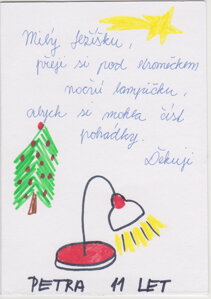 Milý Ježíšku,
přeji si pod stromečkem
noční lampičku,
abych si mohla číst
pohádky.
Děkuji
PETRA 11 LET